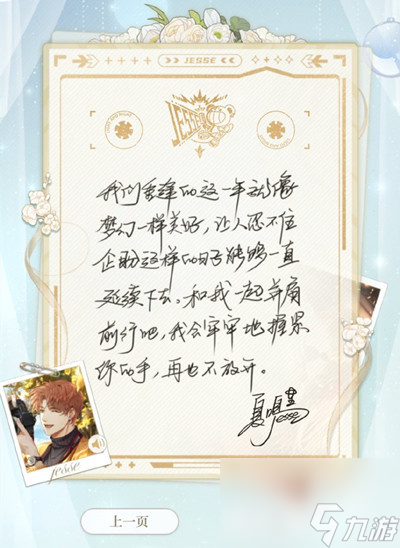 >> JESSE <<
JESSE
我们重逢的这一年就像
梦幻一样美好，让人忍不住
企盼这样的日子能够一直
延续下去。和我一起并肩
前行吧，我会牢牢地握紧
你的手，再也不放开。
夏鸣星
Jesse
Jesse
上一页
九游